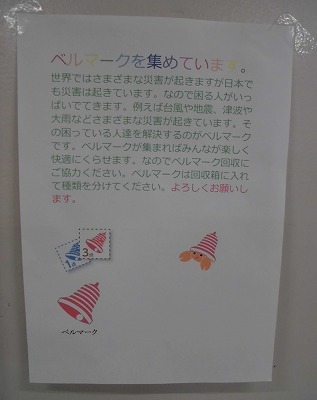 ベルマークを集めています。
世界ではさまざまな災害が起きますが日本で
も災害は起きています。なので困る人がいっ
ぱいでてきます。例えば台風や地震、津波や
大雨などさまざまな災害が起きています。そ
の困っている人達を解決するのがベルマーク
です。ベルマークが集まればみんなが楽しく
快適にくらせます。なのでベルマーク回収に
ご協力ください。ベルマークは回収箱に入れ
て種類を分けてください。よろしくお願いし
ます。
1点
3点
ベルマーク